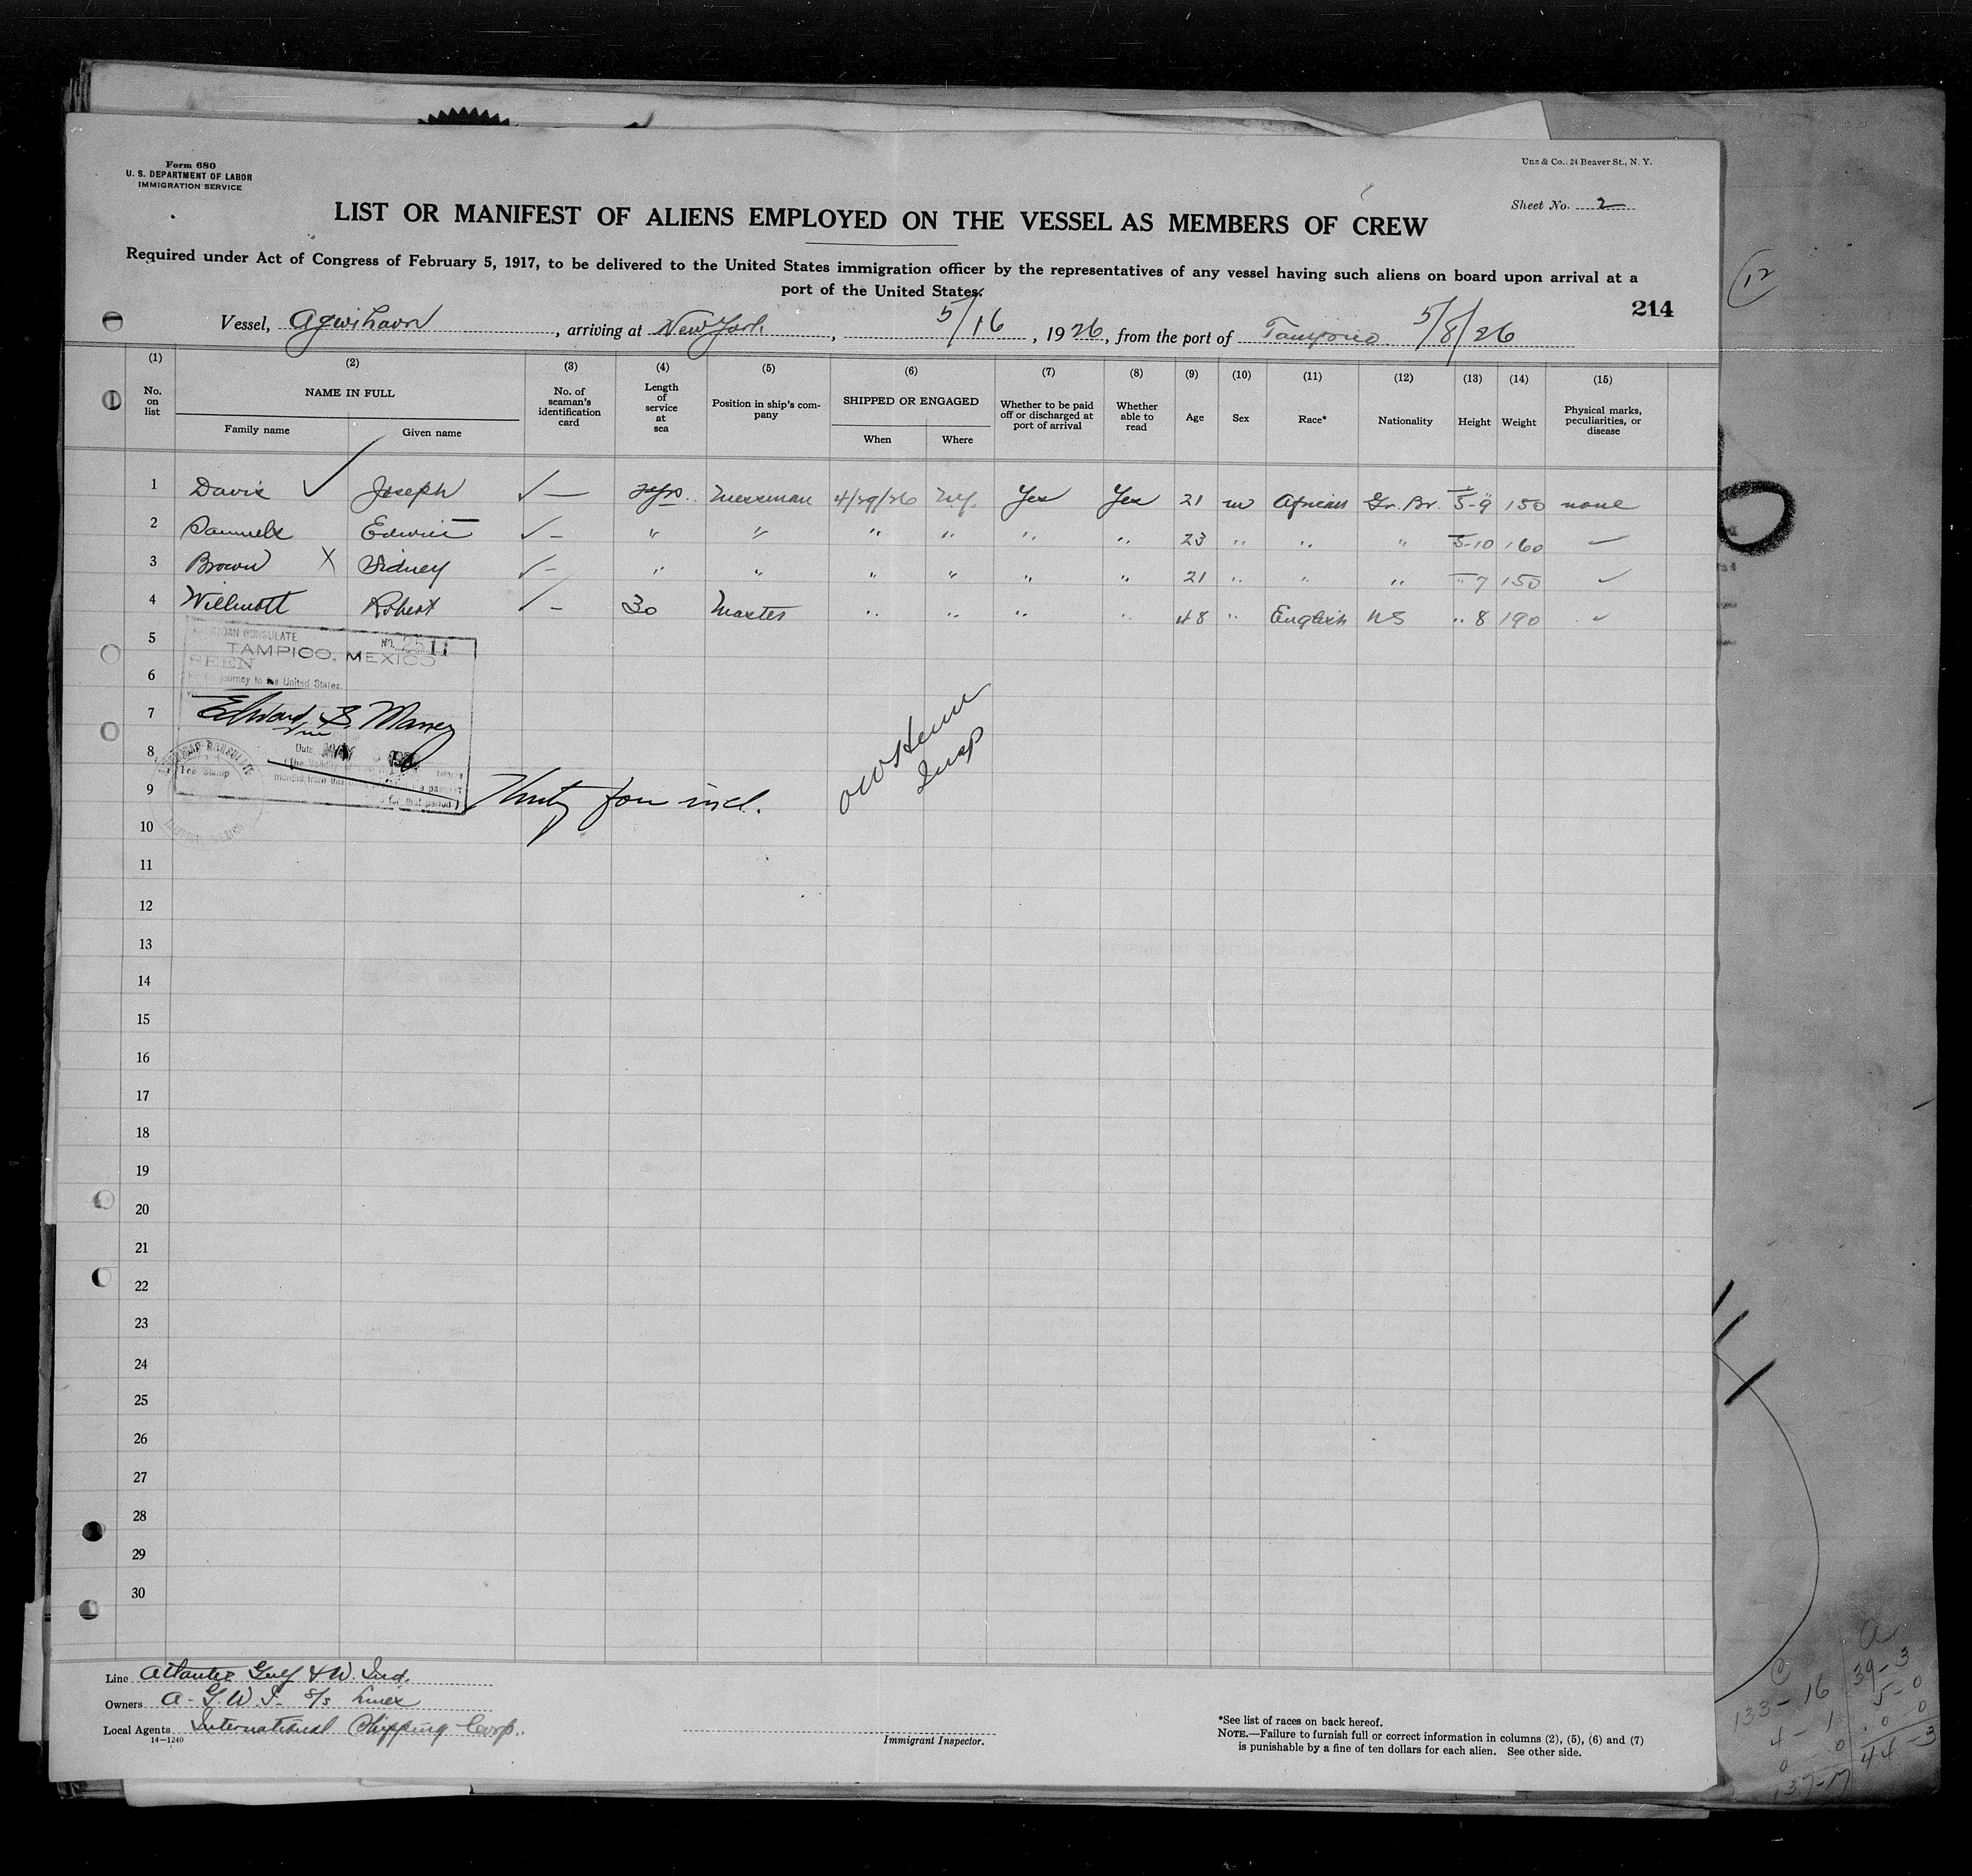 Form 680
U. S. DEPARTMENT OF LABOR
IMMIGRATION SERVICE
Unz & Co., 24 Beaver St., N. Y.
Sheet No. 2
LIST OR MANIFEST OF ALIENS EMPLOYED ON THE VESSEL AS MEMBERS OF CREW
Required under Act of Congress of February 5, 1917, to be delivered to the United States immigration officer by the representatives of any vessel having such aliens on board upon arrival at a
port of the United States.
214
12
Vessel, Agwihavn, arriving at New York, 5/16, 1926, from the port of Tampico 5/8/26
(1) (2) (3) (4) (5) (6) (7) (8) (9) (10) (11) (12) (13) (14) (15)
No. on list NAME IN FULL Family name Given name No. of seaman's identification card Length of service at sea Position in ship's company SHIPPED OR ENGAGED When Where Whether to be paid off or discharged at port of arrival Whether able to read Age Sex Race* Nationality Height Weight Physical marks, peculiarities, or disease
1 Davis ✓ Joseph ✓ — yrs. Messman 4/29/26 N.Y. Yes Yes 21 m African Gr. Br. 5-9 150 none
2 Samuels Edwin ✓ — " " " " " " 23 " " " 5-10 160 ✓
3 Brown X Sidney ✓ — " " " " " " 21 " " " " 7 150 ✓
4 Willmott Robert ✓ — 30 Master " " " " 48 " English US " 8 190 ✓
5
AMERICAN CONSULATE No. 2511
TAMPICO, MEXICO
SEEN
6
journey to the United States.
7
Edward S. Maney
8
Date MAY
Fee Stamp
9
Thirty four incl.
Insp
10
11
12
13
14
15
16
17
18
19
20
21
22
23
24
25
26
27
28
29
30
Line Atlantic Gulf & W. Ind.
Owners A. G. W. I. S/S Lines
Local Agents International Shipping Corp.
14—1240
Immigrant Inspector.
*See list of races on back hereof.
NOTE.—Failure to furnish full or correct information in columns (2), (5), (6) and (7)
is punishable by a fine of ten dollars for each alien. See other side.
C a
133-16 39-3
4-1 5-0
0 0 0 0
137-17 44-3